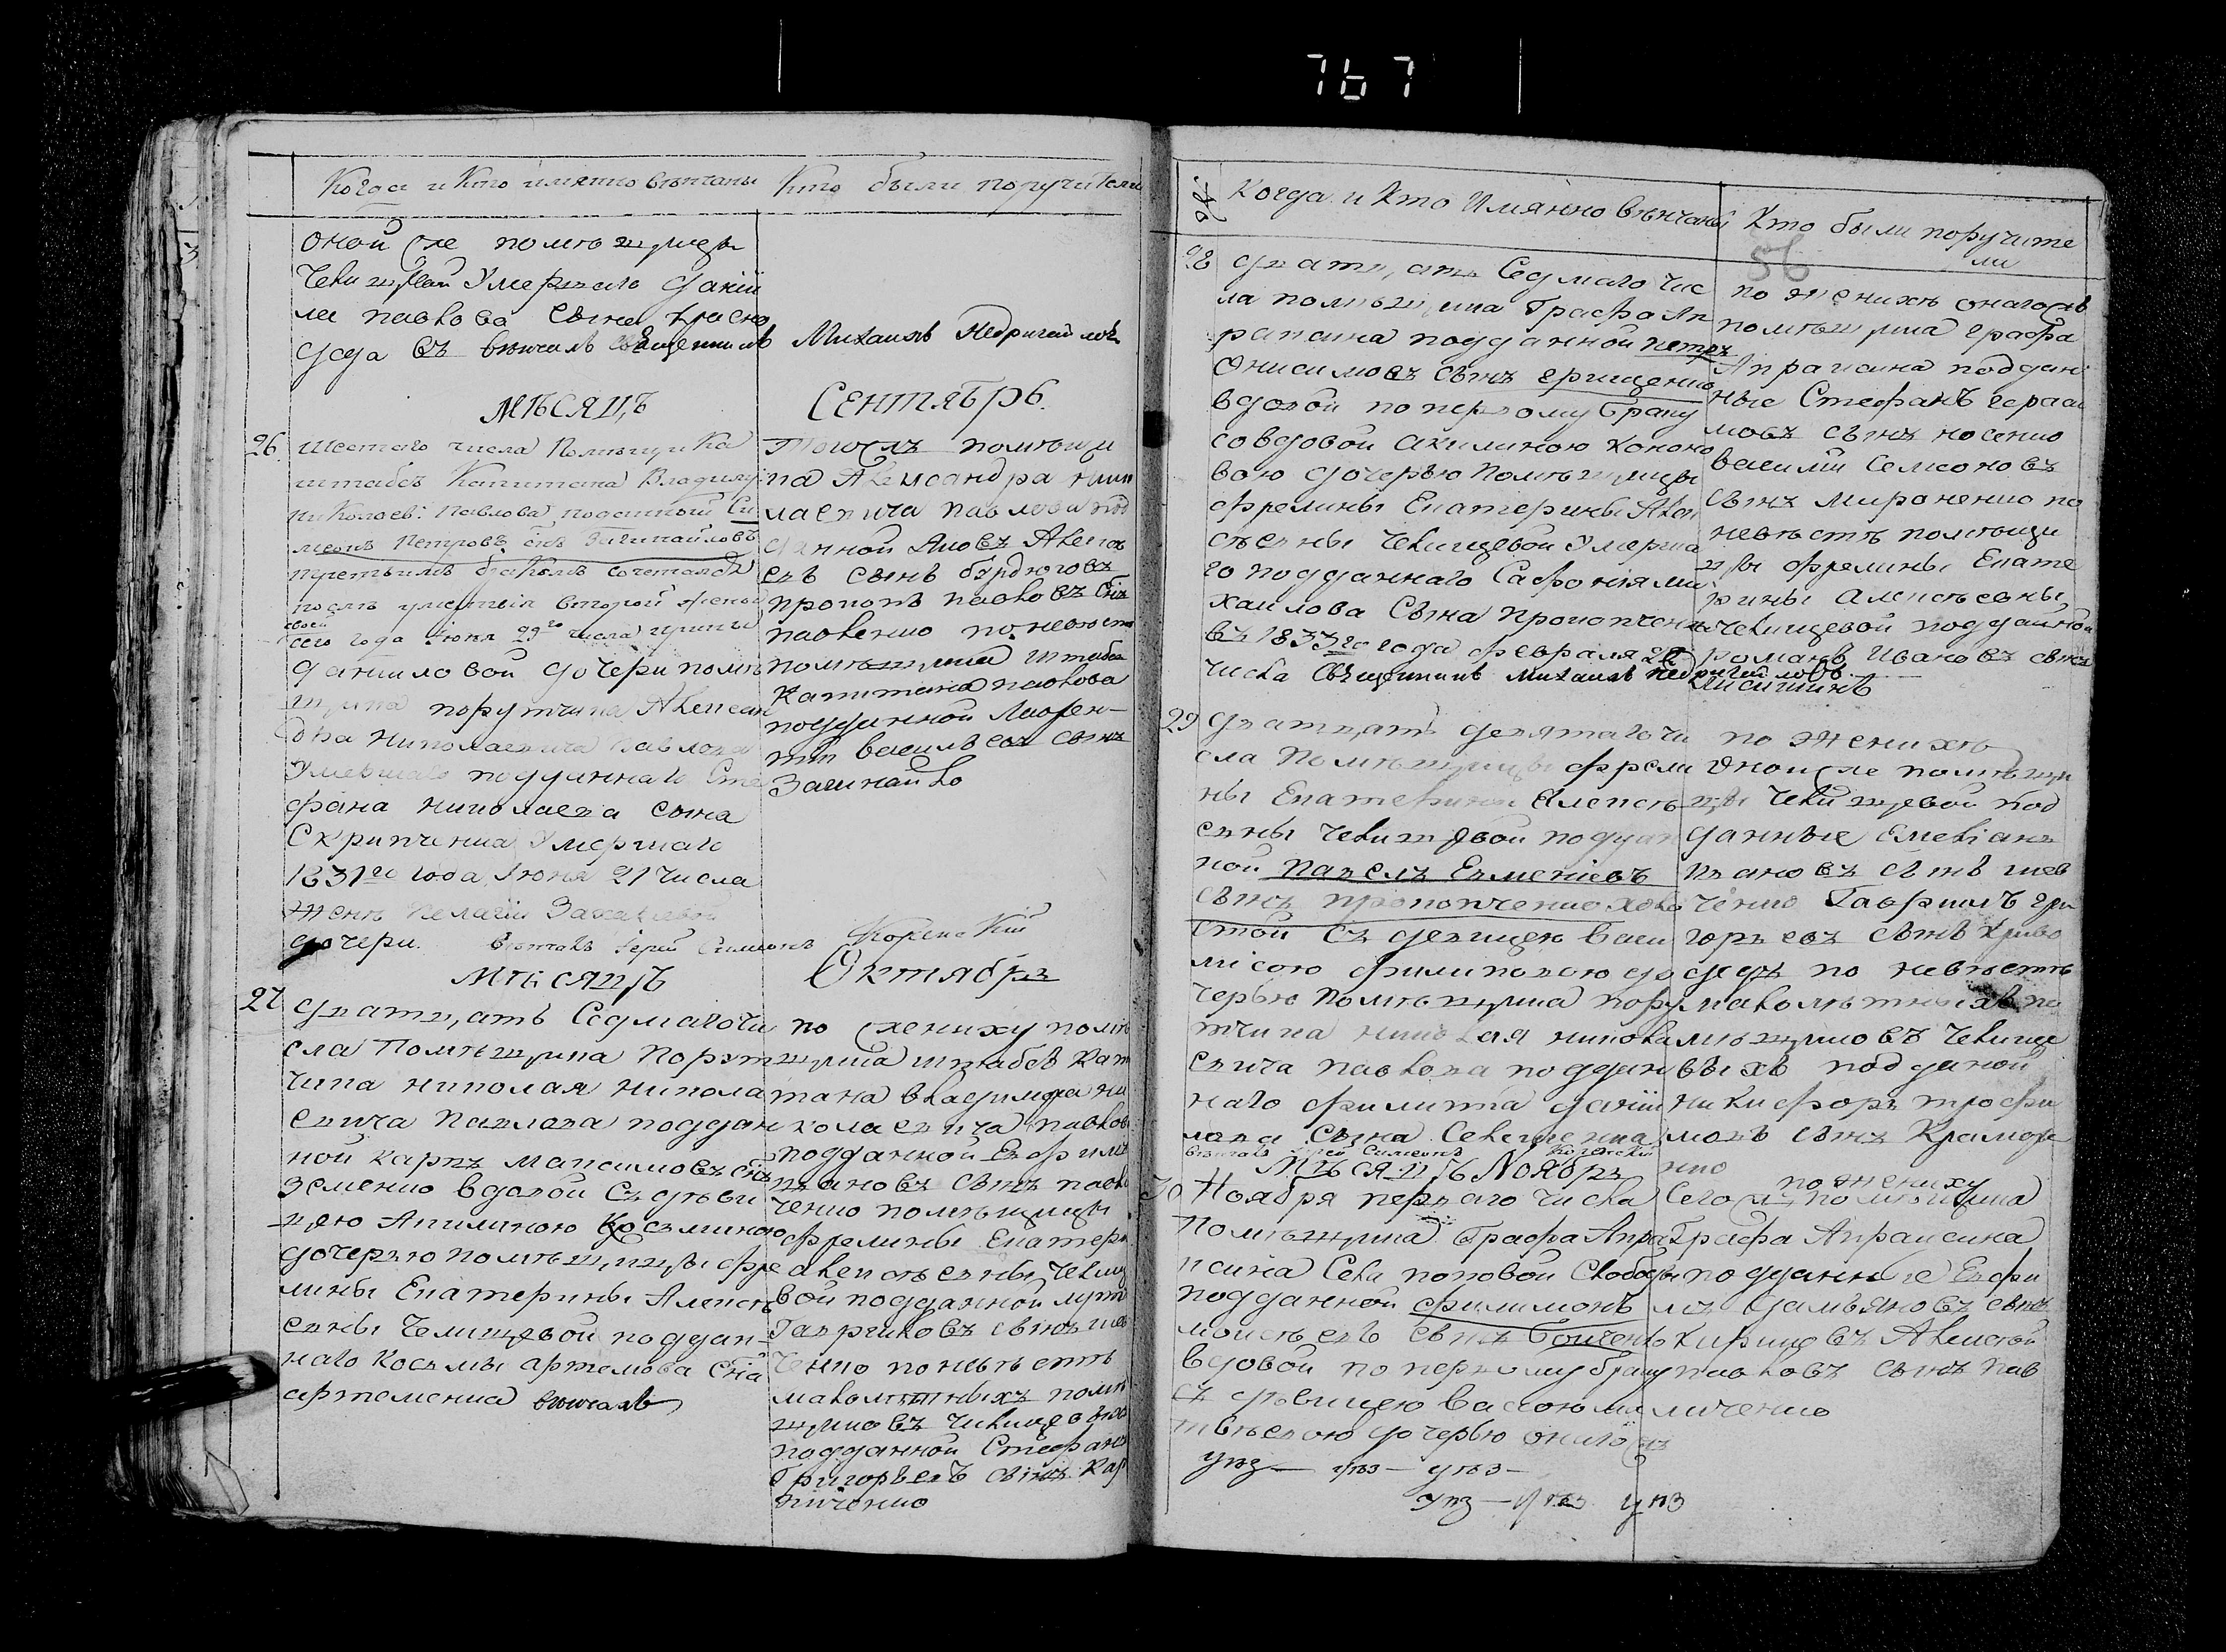 767
Когда и Кто имянно венчаны
Кто были поручители
оной сле помѣщицы
Челищевой Умершаго Данiи
ла павлова сына Красно
деда въ венчалъ Священникъ Михаилъ Недригайловъ
МѢСЯЦЪ
СЕНТЯБРЬ.
26. шестаго числа Помѣщика
штабсъ Капитана Владимир
Николаев: Павлова поданный Си
меонъ Петровъ снъ Загинайловъ
третьимъ бракомъ сочетался
послѣ умертвiя второй жены
своей
сего года Iюня 29го числа
данииловой дочери помѣ
щика порутчика Алексан
дра Николаевича Павлова
Умершаго подданнаго Сте
фана николаева сына
Скрипченка Умершаго
1831го года Iюня 21 числа
женѣ Пелагiи Захарiевой
дочери. Вѣнчалъ Iерей Симеонъ Коренскiй
Тогослъ помѣщи
ка Александра нико
лаевича павлова под
данной Яковъ Алексѣ
евъ сынъ бурдюговъ
прокопъ павловъ снъ
павленко по невѣстѣ
помѣщика штабсъ
Капитана павлова
подданной Лаврен-
тiй васильевъ сынъ
Загинайко
МѢСЯЦЪ
Октябрь
27 дватцать Седмаго чи
сла помѣщика порут
чика николая никола
евича павлова поддан
ной карпъ максимовъ снъ
земенко вдовой съ дѣви
цею Акилиною Косьминою
дочерью помѣщицы фре
лины Екатерины Алексѣ
евны Челищевой поддан-
наго косьмы артемова сна
артеменка вѣнчалъ
по жениху помѣ
щика штабсъ кап
тана владимира ни
колаевича павлова
подданной Ефимъ
ивановъ сынъ павл
ченко помѣщицы
фрелины Екатери
алексѣевны Челище
вой подданной
Гавриловъ сынъ шев
ченко по невѣстѣ
малолѣтныхъ помѣ
щиковъ чилищевыхъ
подданной Стефанъ
Григорьевъ сынъ Кар
пиченко
Когда и Кто Имянно вѣнчаны
Кто были поручите
ли
56
28 дватцать Седмаго чис
ла помѣщика Графа Ап
раксина подданной петръ
Онисимовъ сынъ грищенко
вдовой по первому браку
со вдовой акилиною Кононо
вою дочерью помѣщицы
фрелины Екатерины Алек
сѣевны Челищевой Умерша
го подданнаго Сафонiя ми
хаилова Сына прокопченка
въ 1833го года февраля 20
числа Священникъ Михаилъ Недригайловъ
по женихѣ онагослъ
помѣщика графа
Апраксина поддан
ные Стефанъ гераси
мовъ сынъ носенко
василiй Семеоновъ
сынъ мироненко по
невѣстѣ помѣщи
цы фрелины Екате
рины алексѣевны
челищевой подданной
романъ Ивановъ сынъ
29 дватцать девятаго чи
сла Помѣщицы фрели
ны Екатерины Алексѣ
евны челищевой поддан
ной павелъ Евменiевъ
сынъ прокопченко холо
стой съ девицею васи
лiсою филиповою до
черью помѣщика пору
тчика николая никола
евича павлова поддан
наго филиппа данiи
лова сына
вѣнчалъ Iерей Симеонъ Коренскiй
по женихѣ
Онойсле помѣщи
цы челищевой под
данные Емелiанъ
ивановъ сынъ шев
ченко Гавриилъ гри
горьевъ сынъ Криво
дедъ по невѣстѣ
малолѣтныхъ по
мѣщиковъ челище
выхъ подданой
никифоръ трофи
мовъ сынъ Крамаре
нко
МѢСЯЦЪ НОЯБРЬ
30 Ноября перваго числа
помѣщика Графа Апра
ксина Села поповой слободы
подданной филимонъ
моисѣевъ сынъ Бойченко
вдовой по первому браку
съ дѣвицею вассою ма
твѣевою дочерью онагослъ
по жениху
Сегослъ помѣщика
Графа Апраксина
подданные Евфи
мъ дамьяновъ сынъ
Кирищевъ Алексѣй
павловъ сынъ пав
личенко